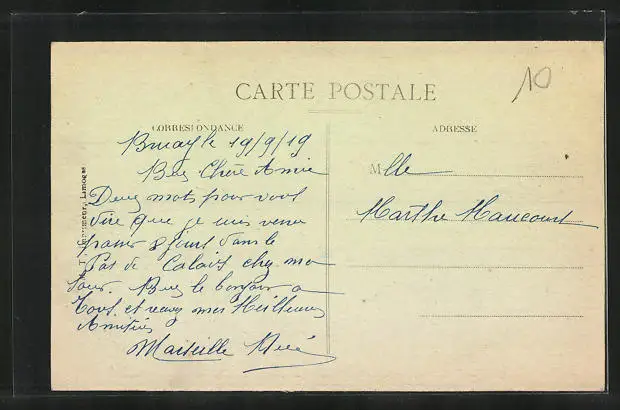 10
CARTE POSTALE
CORRESPONDANCE
ADRESSE
Bruay le 19/9/19
Bien Chère Amie
Deux mots pour vous
dire que je suis venu
passer 8 jours dans le
Pas de Calais chez ma
sœur. Bien le bonjour a
tous et recevez mes Meilleures
Amitiés
Mlle
Marthe Haucourt
Imprimeur, Limoges